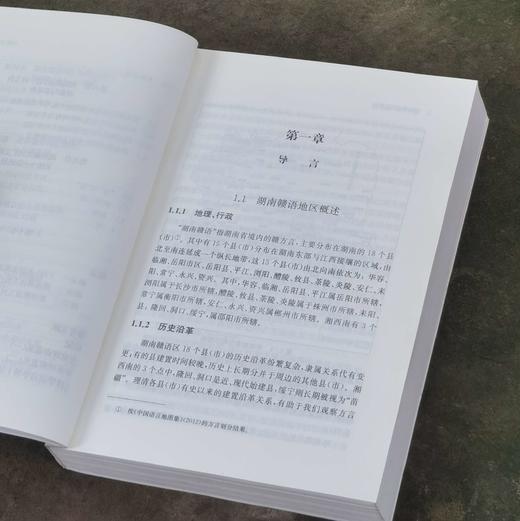 第一章
导 言
1.1 湖南赣语地区概述
1.1.1 地理、行政
“湖南赣语”指湖南省境内的赣方言，主要分布在湖南的18个县
(市)①。其中有15个县(市)分布在湖南东部与江西接壤的区域，由
北至南连述成一个纵长地带，这15个县(市)由北向南依次为：华容、
临湘、岳阳市区、岳阳县、平江、浏阳、醴陵、攸县、茶陵、炎陵、安仁、耒
阳、常宁、永兴、资兴。其中，华容、临湘、岳阳县、平江属岳阳市所辖，
浏阳属于长沙市所辖，醴陵、攸县、茶陵、炎陵属于株洲市所辖，耒阳、
常宁属衡阳市所辖，安仁、永兴、资兴属郴州市所辖。湘西南有3个
县，隆回、洞口、绥宁，属邵阳市所辖。
1.1.2 历史沿革
湖南赣语区18个县(市)的历史沿革纷繁复杂，隶属关系代有变
更，有的县建置时间较晚，历史上长期分并于周边的其他县(市)。湘
西南的3个点中，隆回、洞口是近、现代始建县，绥宁则长期被视为“苗
疆”。理清各县(市)有史以来的建置沿革关系，有助于我们观察方言
① 按《中国语言地图集》(2012)的方言划分结果。